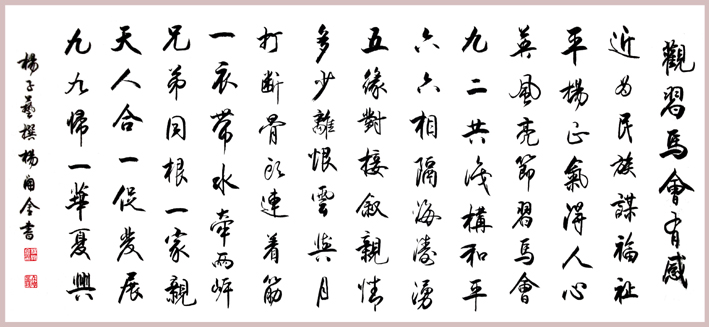 觀習馬會有感
近為民族謀福祉
平揚正氣得人心
英風亮節習馬會
九二共識構和平
六六相隔海濤湧
五緣對接敘親情
多少離恨雲與月
打斷骨頭連着筋
一衣帶水牽兩岸
兄弟同根一家親
天人合一促發展
九九歸一華夏興
楊子藝撰楊金書